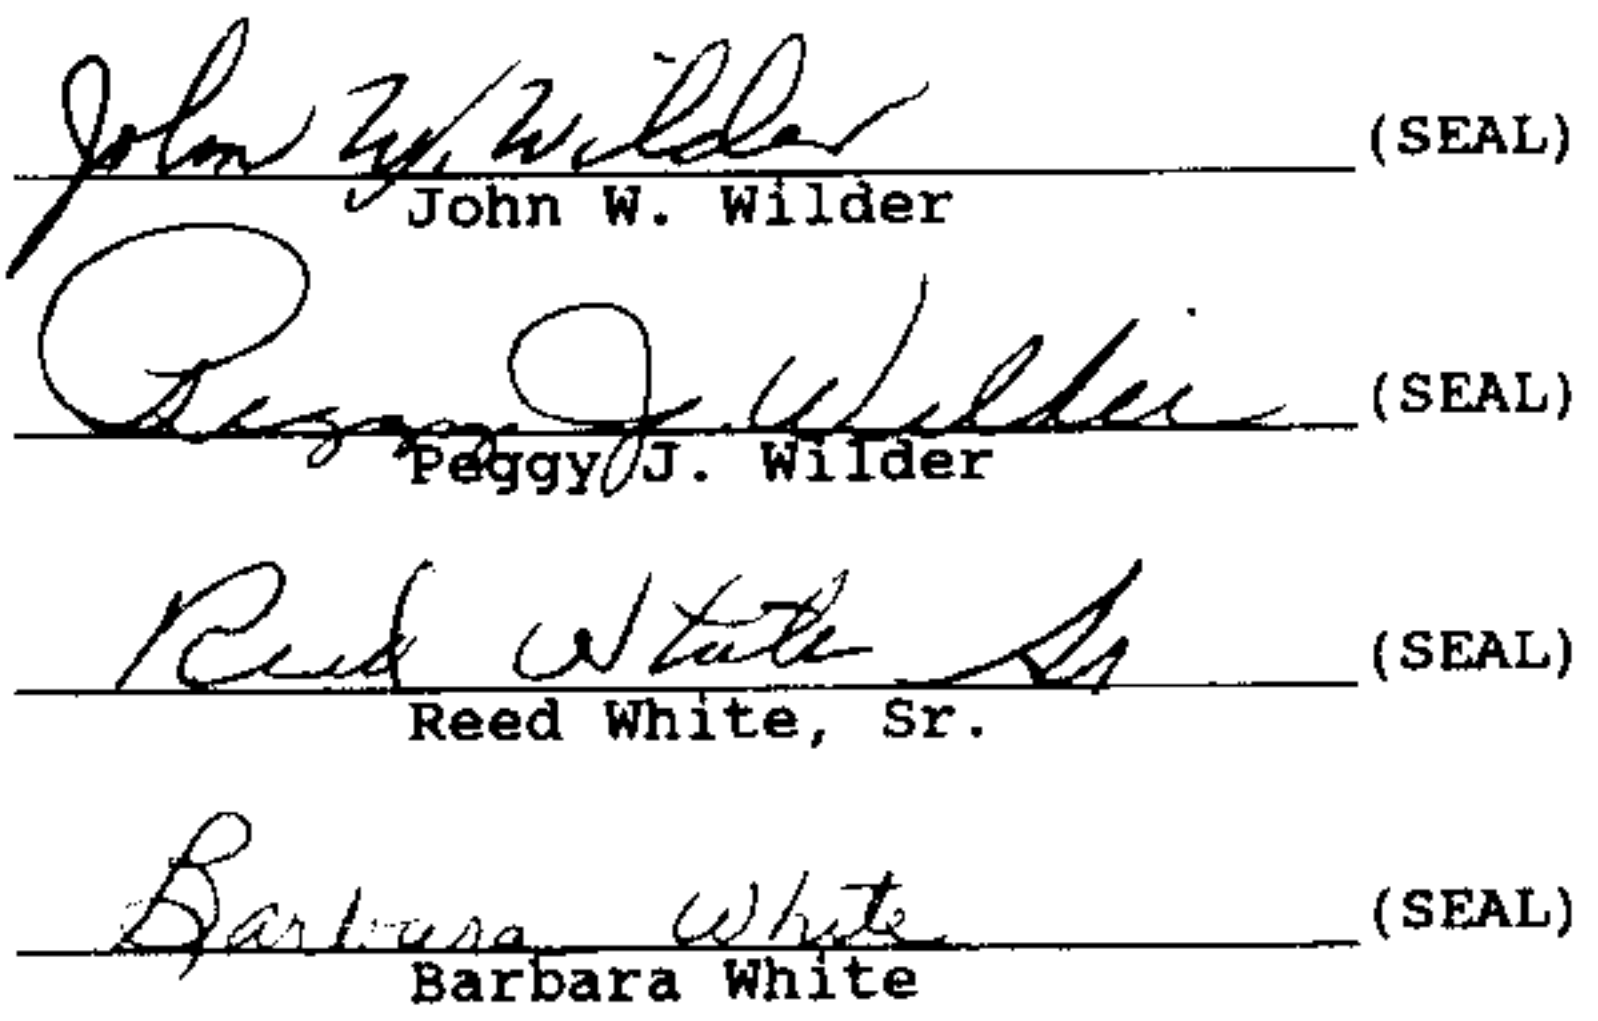 John W. Wilder (SEAL)
John W. Wilder
Peggy J. Wilder (SEAL)
Peggy J. Wilder
Reed White Sr (SEAL)
Reed White, Sr.
Barbara White (SEAL)
Barbara White